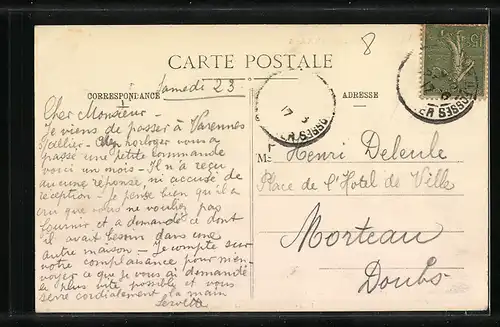 CARTE POSTALE
8
CORRESPONDANCE
ADRESSE
Samedi 23
Cher Monsieur -
Je viens de passer à Varennes
s/allier - Un horloger vous a
passé une petite commande
voici un mois - Il n'a reçu
aucune réponse, ni accusé de
réception - Je pense bien qu'il a
cru que vous ne vouliez pas
fournir et a demandé ce dont
il avait besoin dans une
autre maison - Je compte sur
votre complaisance pour m'en-
voyer ce que je vous ai demandé
le plus vite possible et vous
serre cordialement la main
M. Henri Deleule
Place de l'Hotel de Ville
Morteau
Doubs
15
17